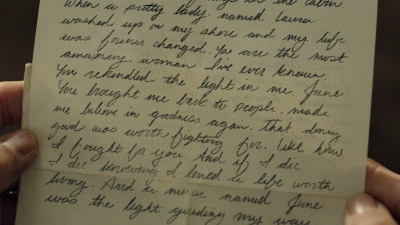 in the cabin.
When a pretty lady named Laura
washed up on my shore and my life
was forever changed. You are the most
amazing woman I've ever known.
You rekindled the light in me June.
You brought me back to people, made
me believe in goodness again. That doing
good was worth fighting for. Like how
I fought for you. And if I die
I die knowing I lived a life worth
living. And a nurse named June
was the light guiding my way